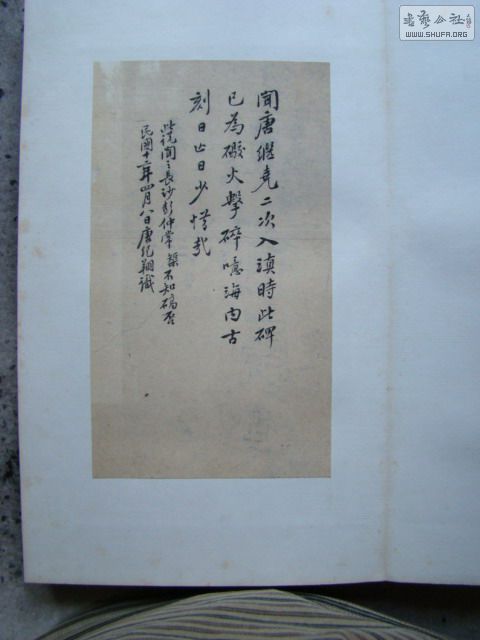 書藝公社
WWW.SHUFA.ORG
聞唐繼堯二次入滇時此碑
已為礮火擊碎噫海內古
刻日亡日少惜哉
此說聞之長沙彭仲不知碻否
民國十二年四月八日唐紀翔識